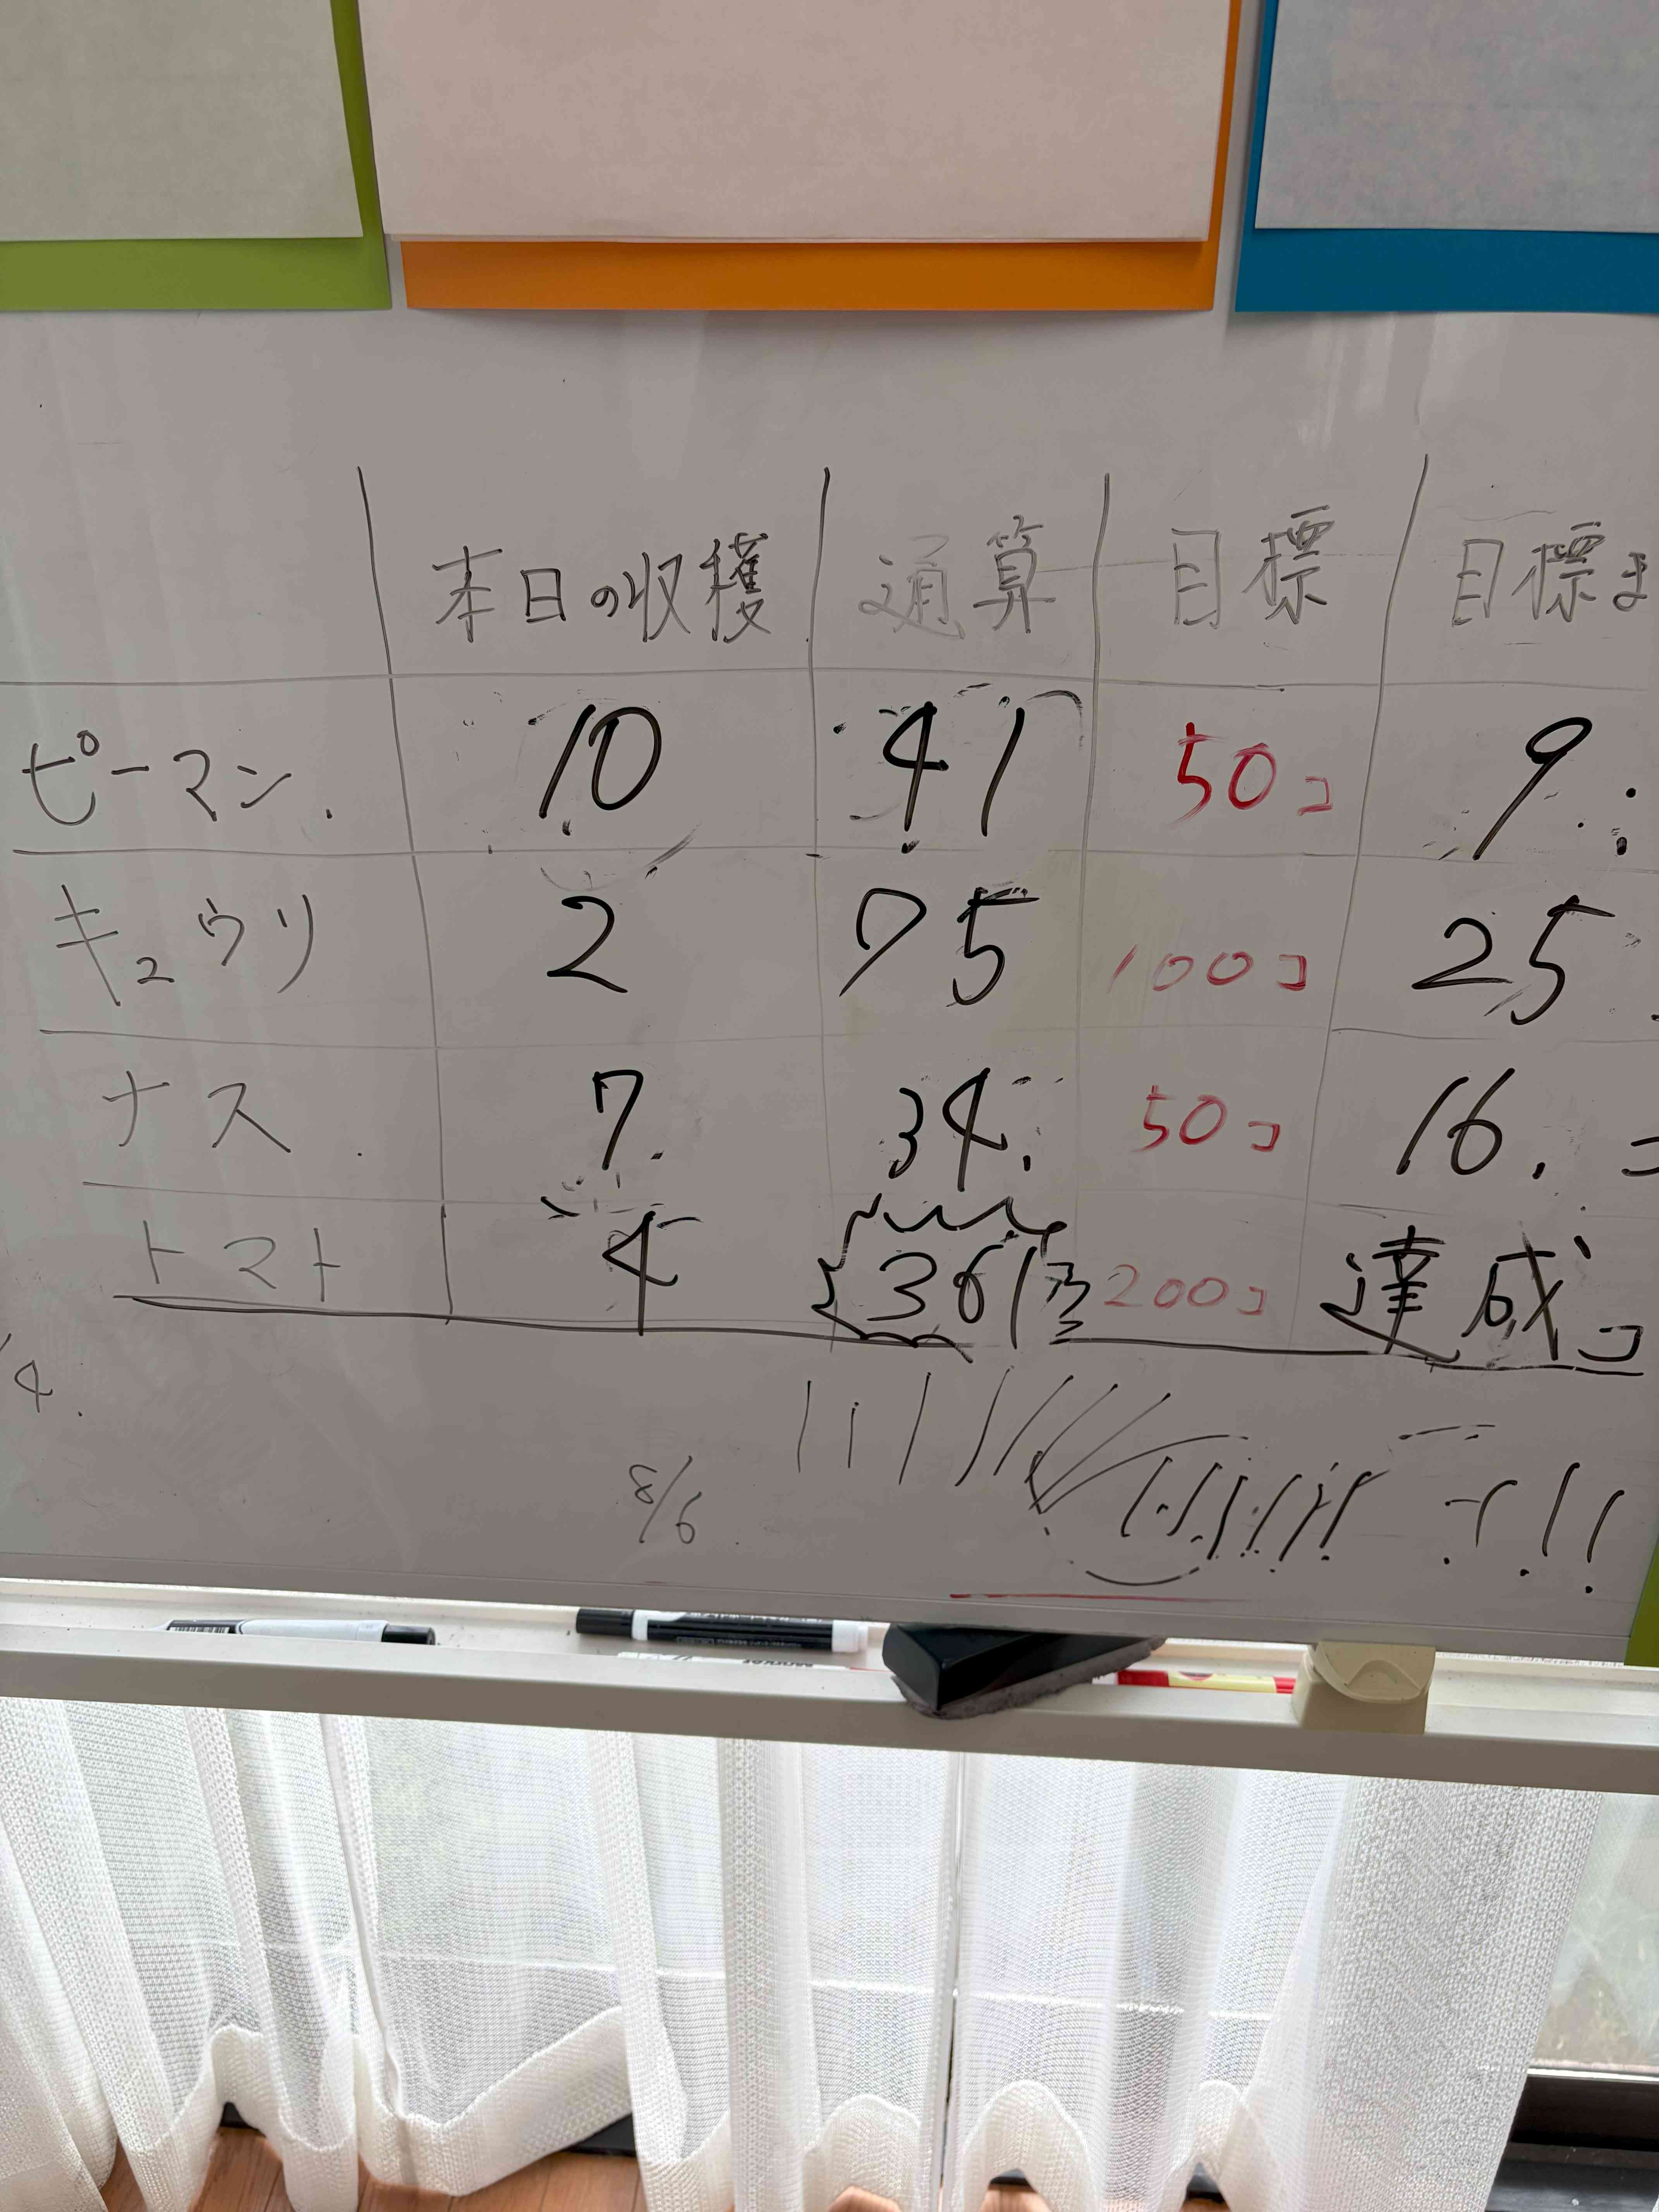 本日の収穫 通算 目標 目標ま
ピーマン 10 41 50コ 9
キュウリ 2 75 100コ 25
ナス 7 34 50コ 16 コ
トマト 4 361 200コ 達成コ
8/6